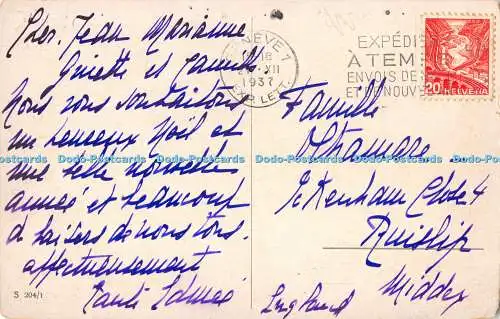 Chers Jean Marianne
Ginette et
Nous vous souhaitons
un heureux Noël et
une belle nouvelle
année et beaucoup
de baisers de nous tous.
affectueusement
Tante Aimée
S 204/1
GENÈVE 1
XII
1937
EXP. LETT.
EXPÉDI
A TEM
ENVOIS DE
ET DE NOUV
20 HELVETIA
Famille
Ickenham Close 4
Ruislip
Middex
England
Dodo-Postcards Dodo-Postcards Dodo-Postcards Dodo-Postcards Dodo-Postcards Dodo-Postcards